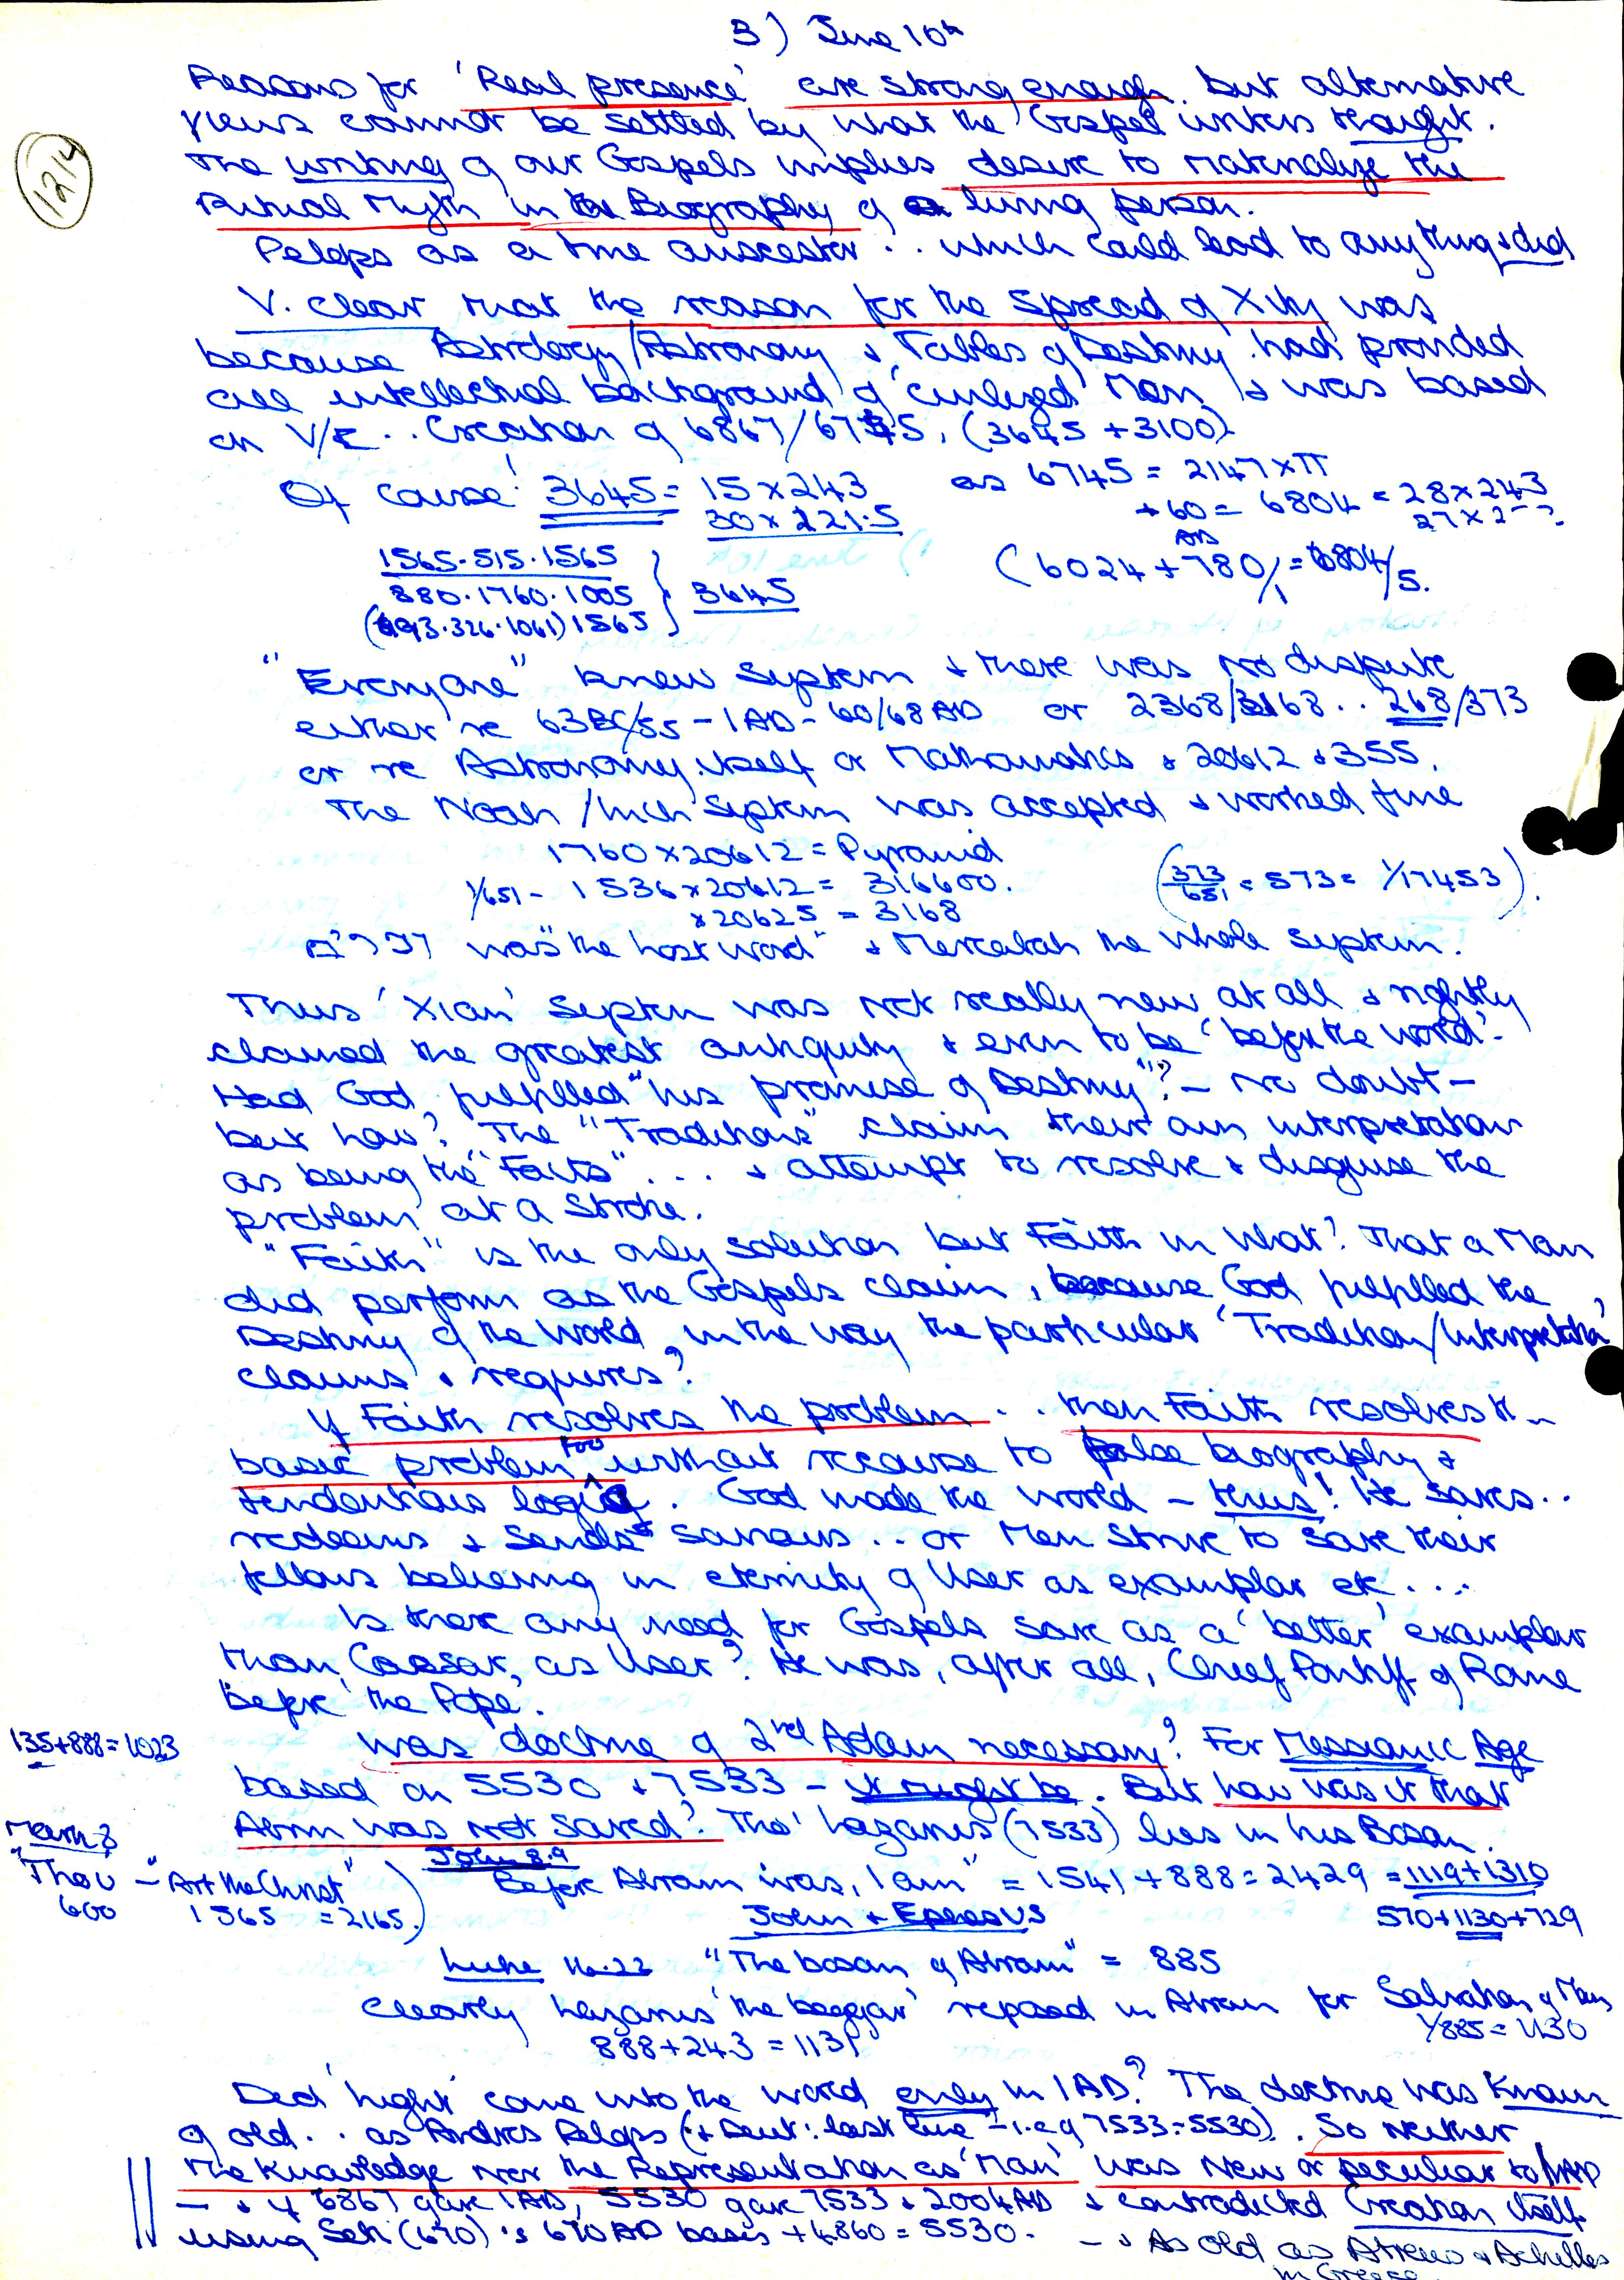 3) June 10th
1214
Reasons for 'Real presence' are strong enough. but alternative
views cannot be settled by what the Gospel writers thought.
The writing of our Gospels implies desire to materialize the
Ritual Myth in the Biography of a living person.
Pelops as a true ancestor . . which could lead to anything & did
V. clear that the reason for the spread of Xity was
because Astrology/Astronomy & 'Tables of Destiny' had provided
all intellectual background of 'civilized' Man & was based
on . . Creation of 6867/6745, (3645 + 3100)
Of course! 3645 = 15 x 243 as 6745 = 2147 x π
30 x 121.5 + 60 = 6804 = 28 x 243
AD
1565 . 515 . 1565 (6024 + 780/1 = 6804/5.
880 . 1760 . 1005 } 3645
(493 . 326 . 1061) 1565
"Everyone" knew system & there was no dispute
either re 63BC/55 - 1AD - 60/68 AD or 2368/3168 . . 268/373
or re Astronomy itself or Mathematics & 20612 & 355.
The Noah/Inch System was accepted & worked fine
1760 x 20612 = Pyramid
1/651 - 1536 x 20612 = 316600. (373/651 = 573 = 1/17453).
x 20625 = 3168
was "the lost word" & Mercabah the whole system.
Thus 'Xian' System was not really new at all & rightly
claimed the greatest antiquity & even to be 'before the world'.
Had God fulfilled "his promise of Destiny"? - no doubt -
but how? The "Traditions" claim their own interpretation
as being the "Facts" . . . & attempt to resolve & disguise the
problem at a stroke.
"Faith" is the only solution but Faith in what? That a Man
did perform as the Gospels claim, because God fulfilled the
Destiny of the World in the way the particular 'Tradition/Interpretation'
claims & requires?
If Faith resolves the problem . . then Faith resolves the
basic problem too without recourse to false biography &
tendentious logic. God made the world - thus! He saves . .
redeems & sends saviours . . or Men strive to save their
fellows believing in eternity of User as exemplar etc . . .
Is there any need for Gospels save as a 'better' exemplar
than Caesar, as User? He was, after all, Chief Pontiff of Rome
before 'the Pope'.
135+888=1023
Was doctrine of 2nd Adam necessary? For Messianic Age
based on 5530 & 7533 - it might be. But how was it that
Abram was not saved? Tho' Lazarus (7533) lies in his Bosom.
"Thou - "Art the Christ"
600 1565 = 2165.)
John 8.9
"Before Abram was, I am" = 1541 + 888 = 2429 = 1119+1310
John & Ephesus 570+1130+729
Luke 16.22 "The bosom of Abram" = 885
Clearly Lazarus 'the beggar' reposed in Abram for Salvation of Man
888 + 243 = 1131 1/885 = 1130
Did 'light' come into the world only in 1AD? The doctrine was known
of old . . as Pelops (& Deut: last line - i.e of 7533-5530). So neither
the Knowledge nor the Representation as 'Man' was New or peculiar to 1AD
- & if 6867 gave 1AD, 5530 gave 7533 & 2004AD & contradicted Creation itself
using Seth (670) 's 670AD basis + 4860 = 5530. - & As old as Atreus & Achilles
in Greece